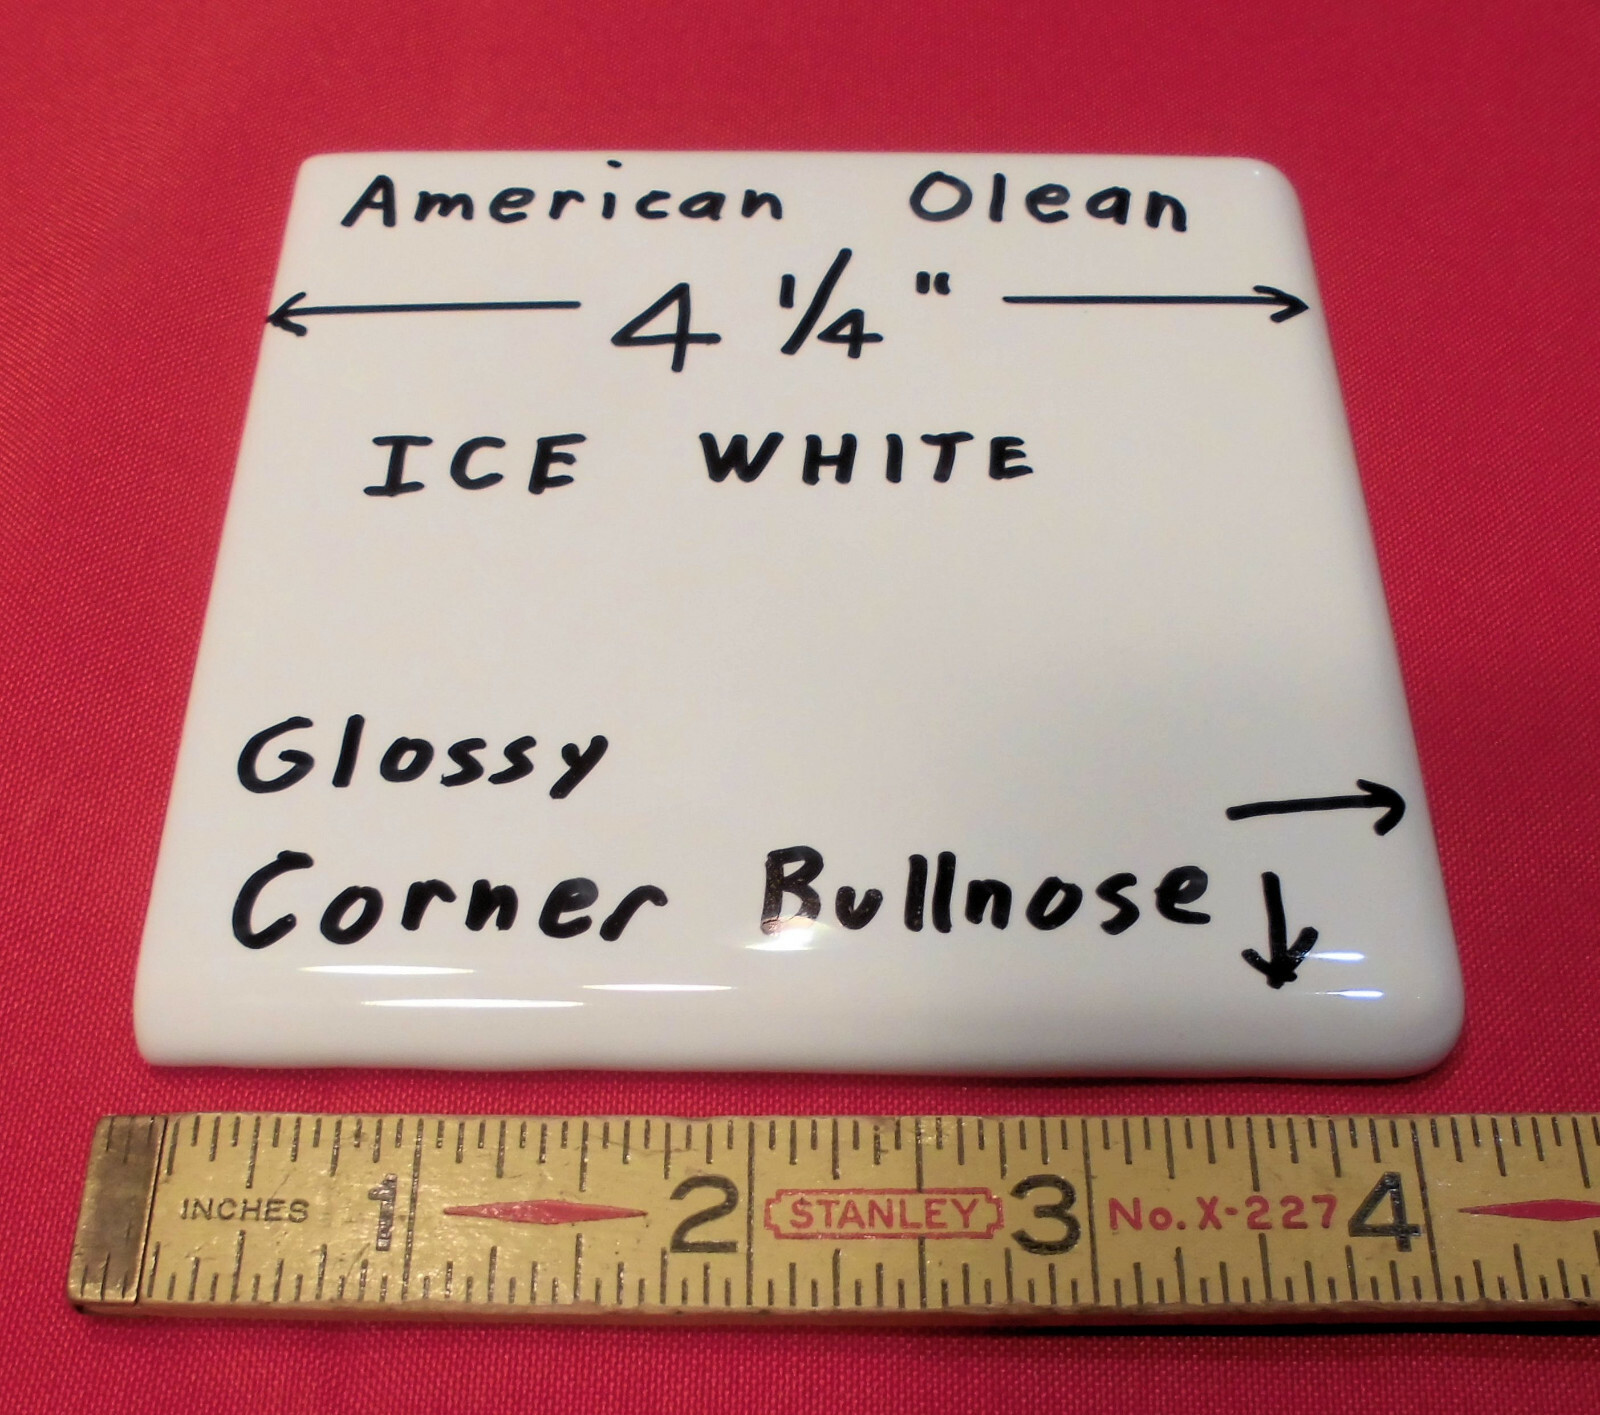 American Olean
4 1/4 "
ICE WHITE
Glossy
Corner Bullnose
INCHES 1 2 STANLEY 3 No. X-227 4